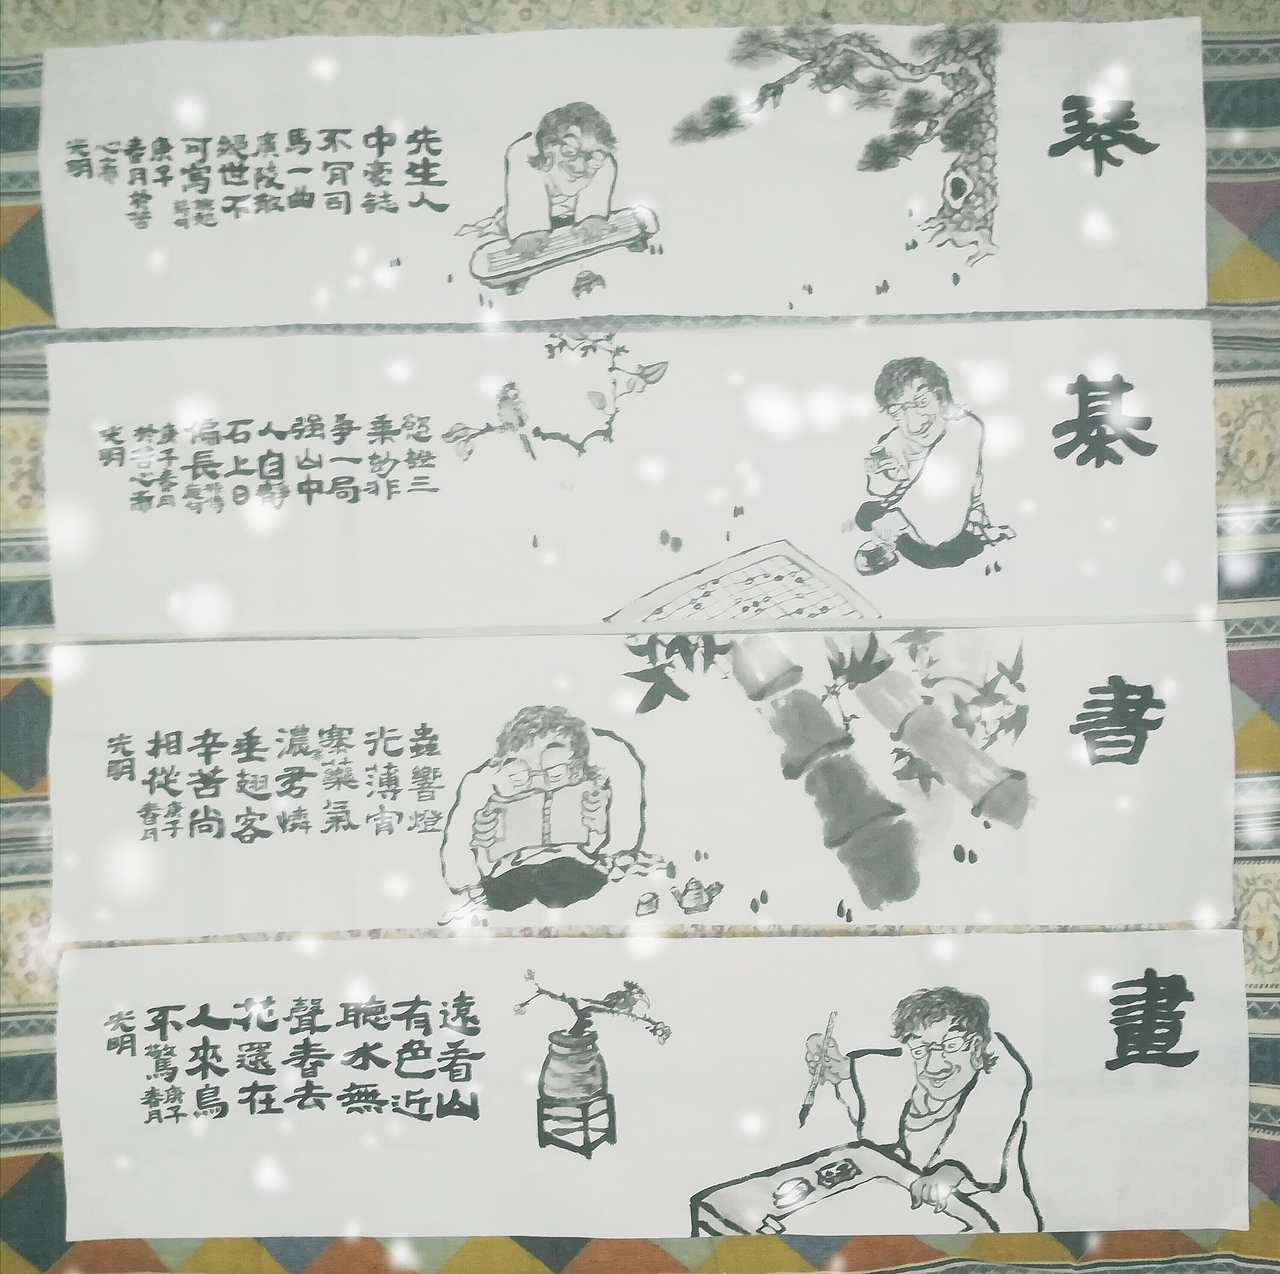 琴
先生人
中豪誌
不肎司
馬一曲
廣陵散
絕世不
可寫
庚子
春月於苦
心齋
光明
棊
慾證三
乘妙非
爭一局
强山中
人自靜
石上日
偏長
庚子春月
於苦心齋
光明
書
蟲響燈
光薄宵
寒藥氣
濃君憐
垂翅客
辛苦尚
相從
庚子
春月
光明
畫
遠看山
有色近
聽水無
聲春去
花還在
人來鳥
不驚
庚子
春月
光明